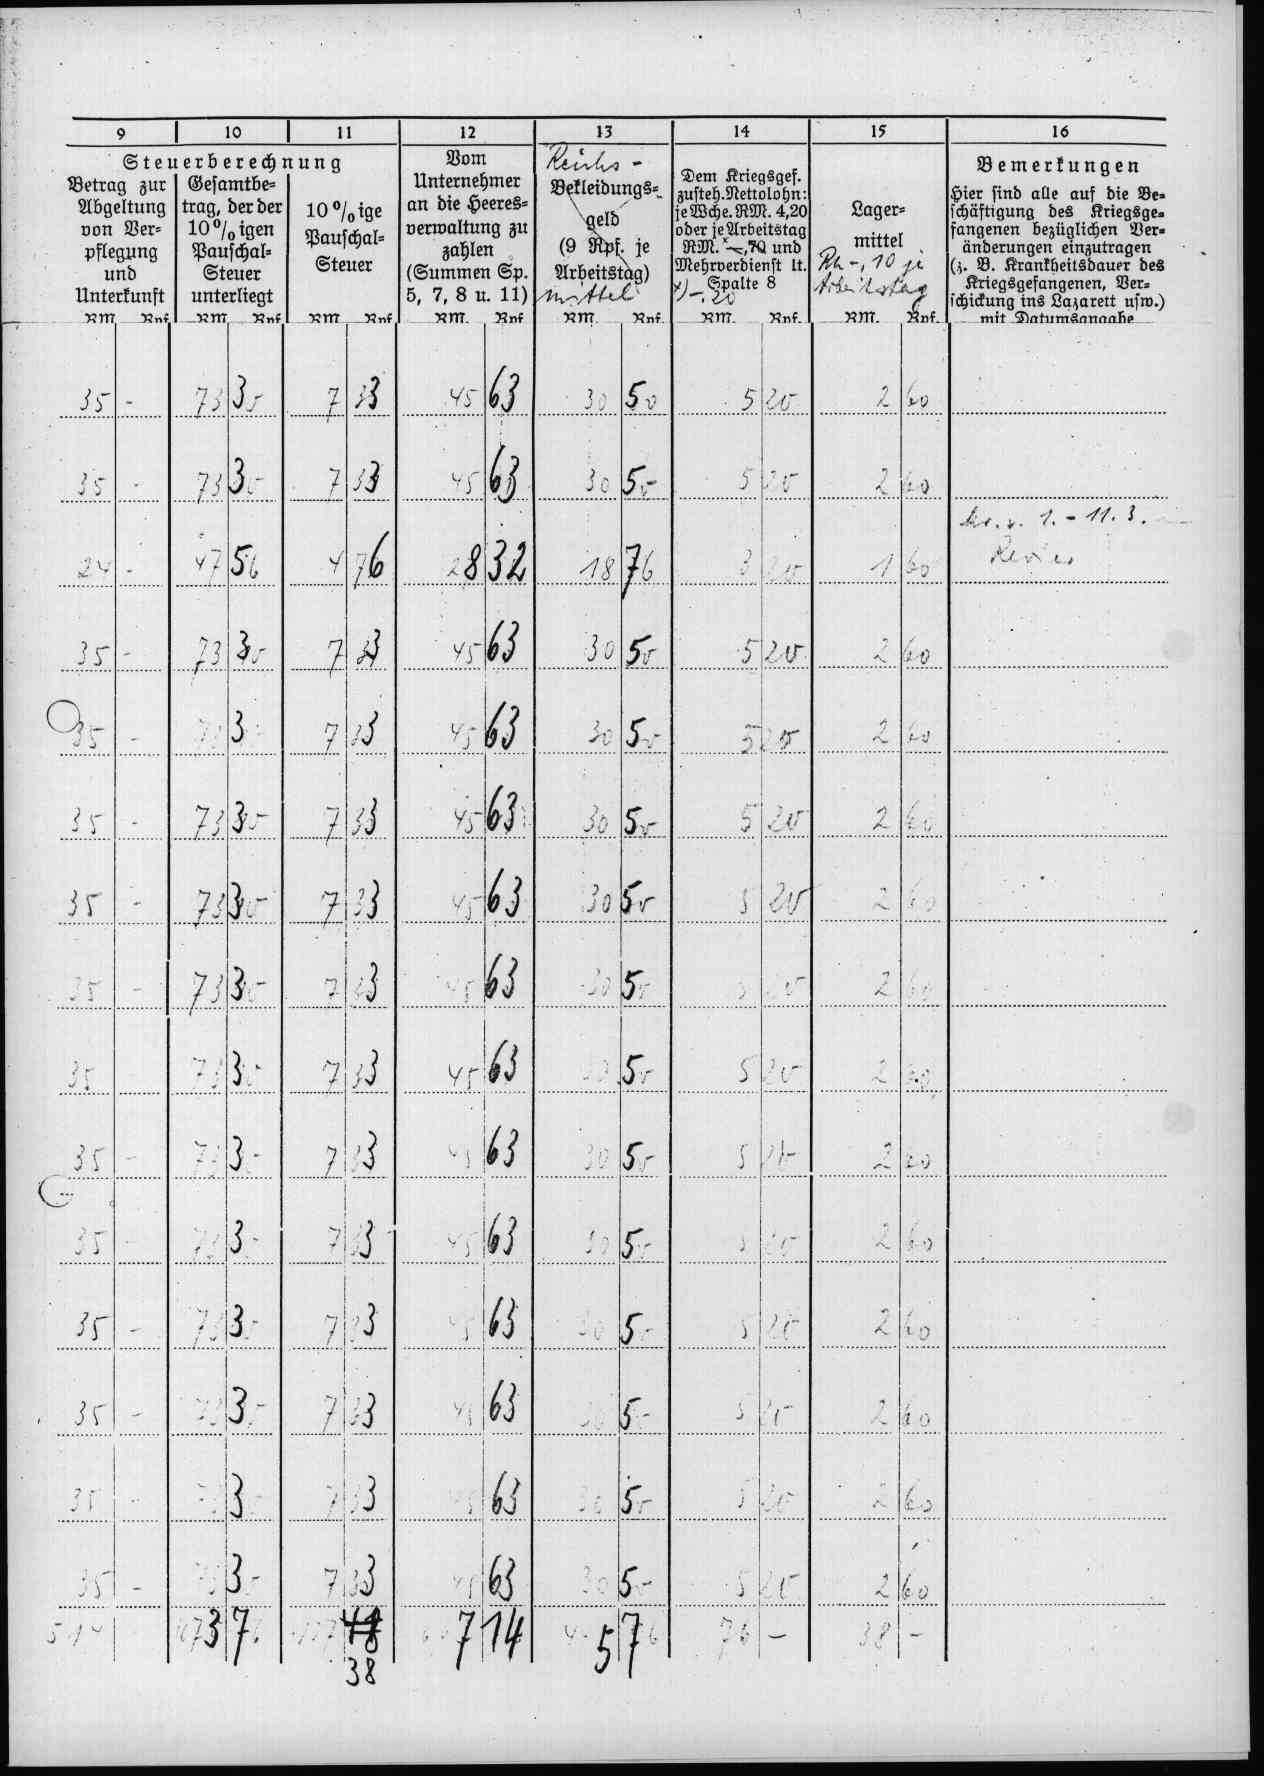 9 10 11 12 13 14 15 16
Steuerberechnung
Betrag zur
Abgeltung
von Ver-
pflegung
und
Unterkunft
RM. Rpf.
Gesamtbe-
trag, der der
10%igen
Pauschal-
Steuer
unterliegt
RM. Rpf.
10%ige
Pauschal-
Steuer
RM. Rpf.
Vom
Unternehmer
an die Heeres-
verwaltung zu
zahlen
(Summen Sp.
5, 7, 8 u. 11)
RM. Rpf.
Reichs-
Bekleidungs-
geld
(9 Rpf. je
Arbeitstag)
mittel
RM. Rpf.
Dem Kriegsgef.
zusteh. Nettolohn:
je Wche. RM. 4,20
oder je Arbeitstag
RM. x -,70 und
Mehrverdienst lt.
x) -.20 Spalte 8
RM. Rpf.
Lager-
mittel
RM -, 10 je
Arbeitstag
RM. Rpf.
Bemerkungen
Hier sind alle auf die Be-
schäftigung des Kriegsge-
fangenen bezüglichen Ver-
änderungen einzutragen
(z. B. Krankheitsdauer des
Kriegsgefangenen, Ver-
schickung ins Lazarett usw.)
mit Datumsangabe
35 - 73 30 7 33 45 63 30 50 5 20 2 60
35 - 73 30 7 33 45 63 30 50 5 20 2 60
v. 1. - 11. 3.
24 - 47 56 4 76 28 32 18 76 3 20 1 60 Revier
35 - 73 30 7 33 45 63 30 50 5 20 2 60
35 - 73 3 7 33 45 63 30 50 5 20 2 60
35 - 73 30 7 33 45 63 30 50 5 20 2 60
35 - 73 30 7 33 45 63 30 50 5 20 2 60
35 - 73 30 7 33 45 63 30 50 5 20 2 60
35 73 30 7 33 45 63 30 50 5 20 2 60
35 - 73 3 7 33 45 63 30 50 5 20 2 60
35 - 73 3 7 33 45 63 30 50 5 20 2 60
35 - 73 30 7 33 45 63 30 50 5 20 2 60
35 - 73 30 7 33 45 63 30 5 5 20 2 60
35 - 73 3 7 33 45 63 30 50 5 20 2 60
35 - 73 3 7 33 45 63 30 5 5 20 2 60
514 1073 76 107 48 7 14 5 76 76 - 38 -
38